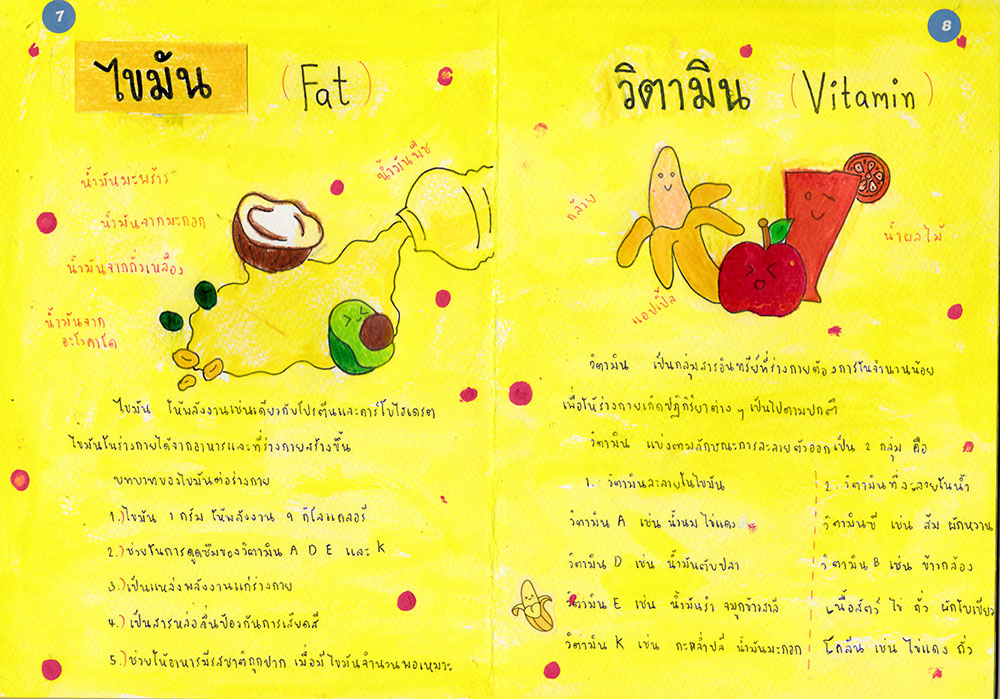 7
ไขมัน (Fat)
น้ำมันพืช
น้ำมันมะพร้าว
น้ำมันจากมะกอก
น้ำมันจากถั่วเหลือง
น้ำมันจาก
อะโวคาโด
ไขมัน ให้พลังงานเช่นเดียวกับโปรตีนและคาร์โบไฮเดรต
ไขมันในร่างกายได้จากอาหารและที่ร่างกายสร้างขึ้น
บทบาทของไขมันต่อร่างกาย
1.) ไขมัน 1 กรัม ให้พลังงาน 9 กิโลแคลอรี
2.) ช่วยในการดูดซึมของวิตามิน A D E และ K
3.) เป็นแหล่งพลังงานแก่ร่างกาย
4.) เป็นสารหล่อลื่นป้องกันการเสียดสี
5.) ช่วยให้อาหารมีรสชาติถูกปาก เมื่อมีไขมันจำนวนพอเหมาะ
8
วิตามิน (Vitamin)
กล้วย
น้ำผลไม้
แอปเปิ้ล
วิตามิน เป็นกลุ่มสารอินทรีย์ที่ร่างกายต้องการในจำนวนน้อย
เพื่อให้ร่างกายเกิดปฏิกิริยาต่าง ๆ เป็นไปตามปกติ
วิตามิน แบ่งตามลักษณะการละลายตัวออกเป็น 2 กลุ่ม คือ
1. วิตามินละลายในไขมัน
วิตามิน A เช่น น้ำนม ไข่แดง
วิตามิน D เช่น น้ำมันตับปลา
วิตามิน E เช่น น้ำมันรำ จมูกข้าวสาลี
วิตามิน K เช่น กะหล่ำปลี น้ำมันมะกอก
2. วิตามินที่ละลายในน้ำ
วิตามินซี เช่น ส้ม ผักหวาน
วิตามิน B เช่น ข้าวกล้อง
เนื้อสัตว์ ไข่ ถั่ว ผักใบเขียว
โคลีน เช่น ไข่แดง ถั่ว